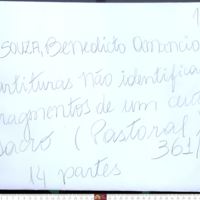 1
SOUZA, Benedicto Amancio
Partituras não identifica
fragmentos de um
sacro (Pastoral)
361/
14 partes